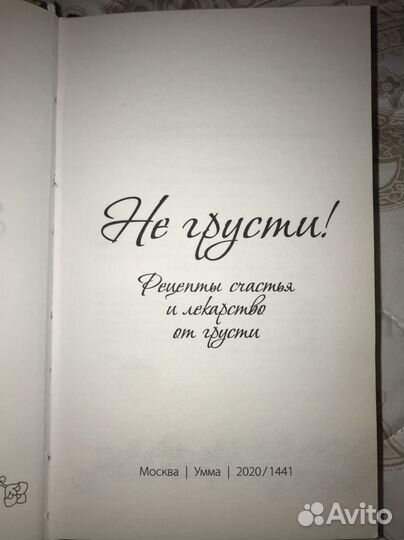 Не грусти!
Рецепты счастья
и лекарство
от грусти
Москва | Умма | 2020/1441
Avito